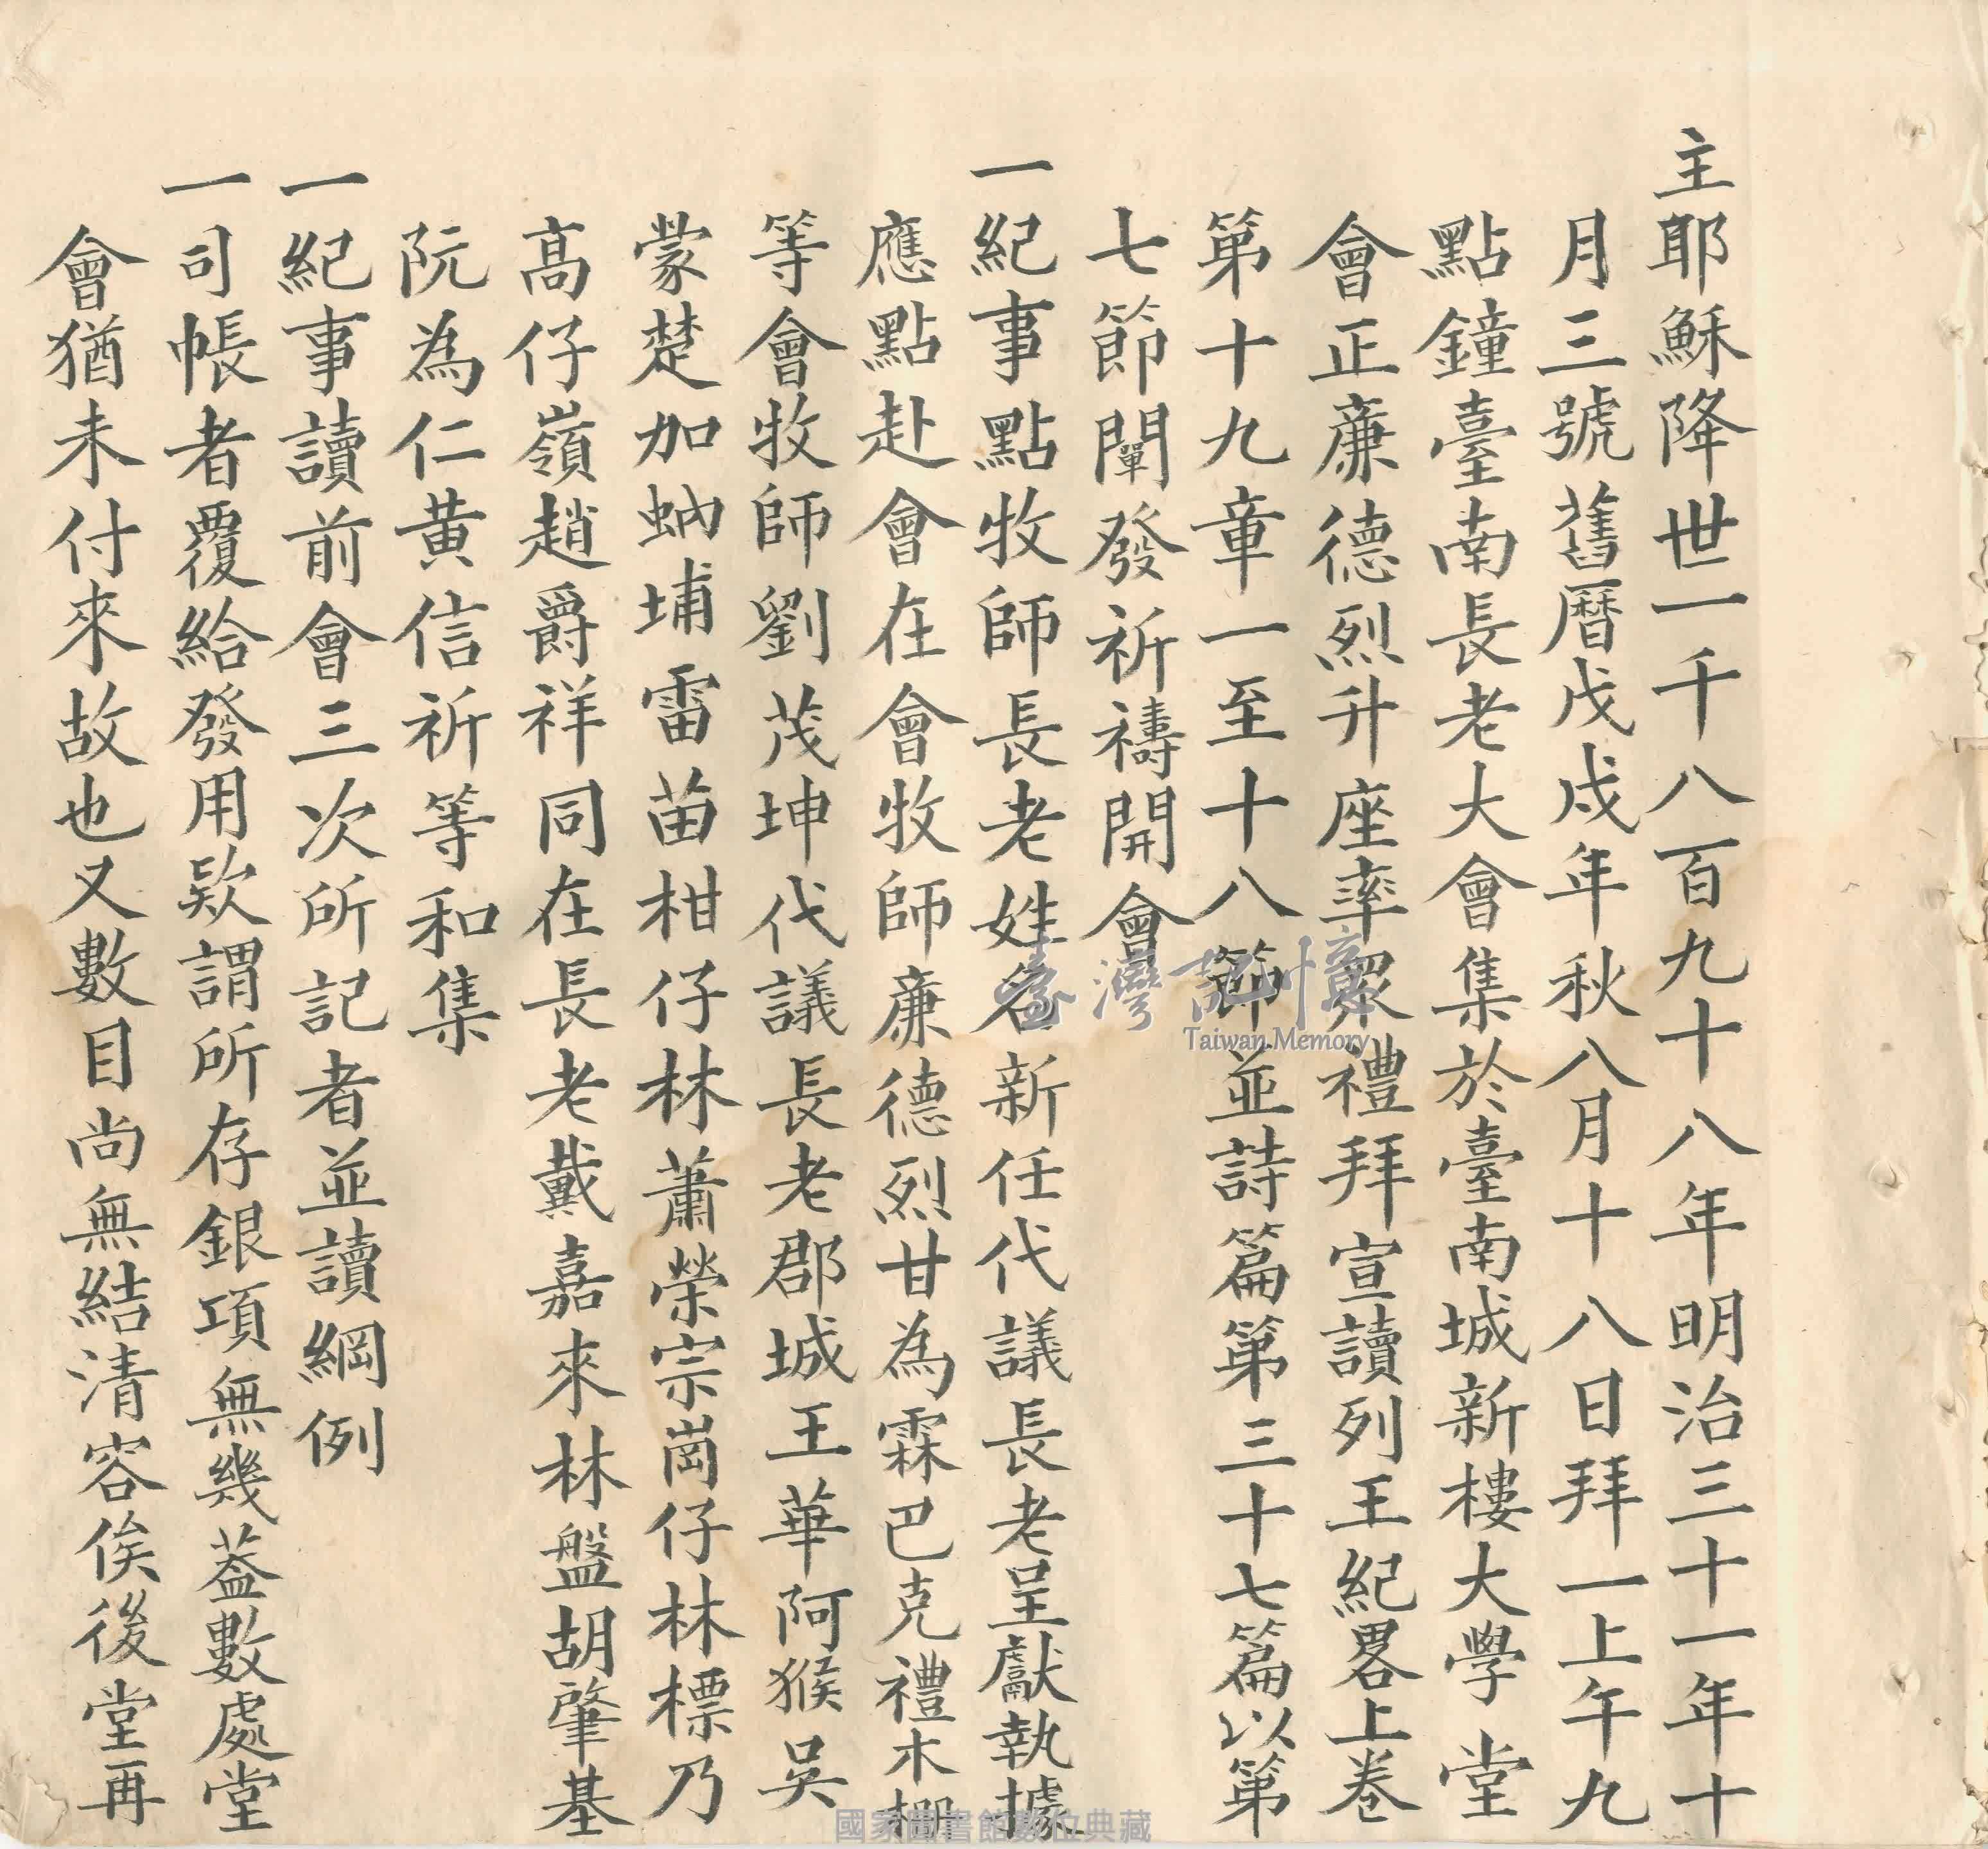 主耶穌降世一千八百九十八年明治三十一年十
月三號舊曆戊戌年秋八月十八日拜一上午九
點鐘臺南長老大會集於臺南城新樓大學堂
會正廉德烈升座率眾禮拜宣讀列王紀畧上卷
第十九章一至十八節並詩篇第三十七篇以第
七節闡發祈禱開會
一紀事點牧師長老姓名新任代議長老呈獻執據
應點赴會在會牧師廉德烈甘為霖巴克禮木柵
等會牧師劉茂坤代議長老郡城王華阿猴吳
蒙楚加蚋埔雷苗柑仔林蕭榮宗崗仔林林標乃
高仔嶺趙爵祥同在長老戴嘉來林盤胡肇基
阮為仁黃信祈等和集
一紀事讀前會三次所記者並讀綱例
一司帳者覆給發用欵謂所存銀項無幾蓋數處堂
會猶未付來故也又數目尚無結清容俟後堂再
臺灣記憶
Taiwan Memory
國家圖書館數位典藏